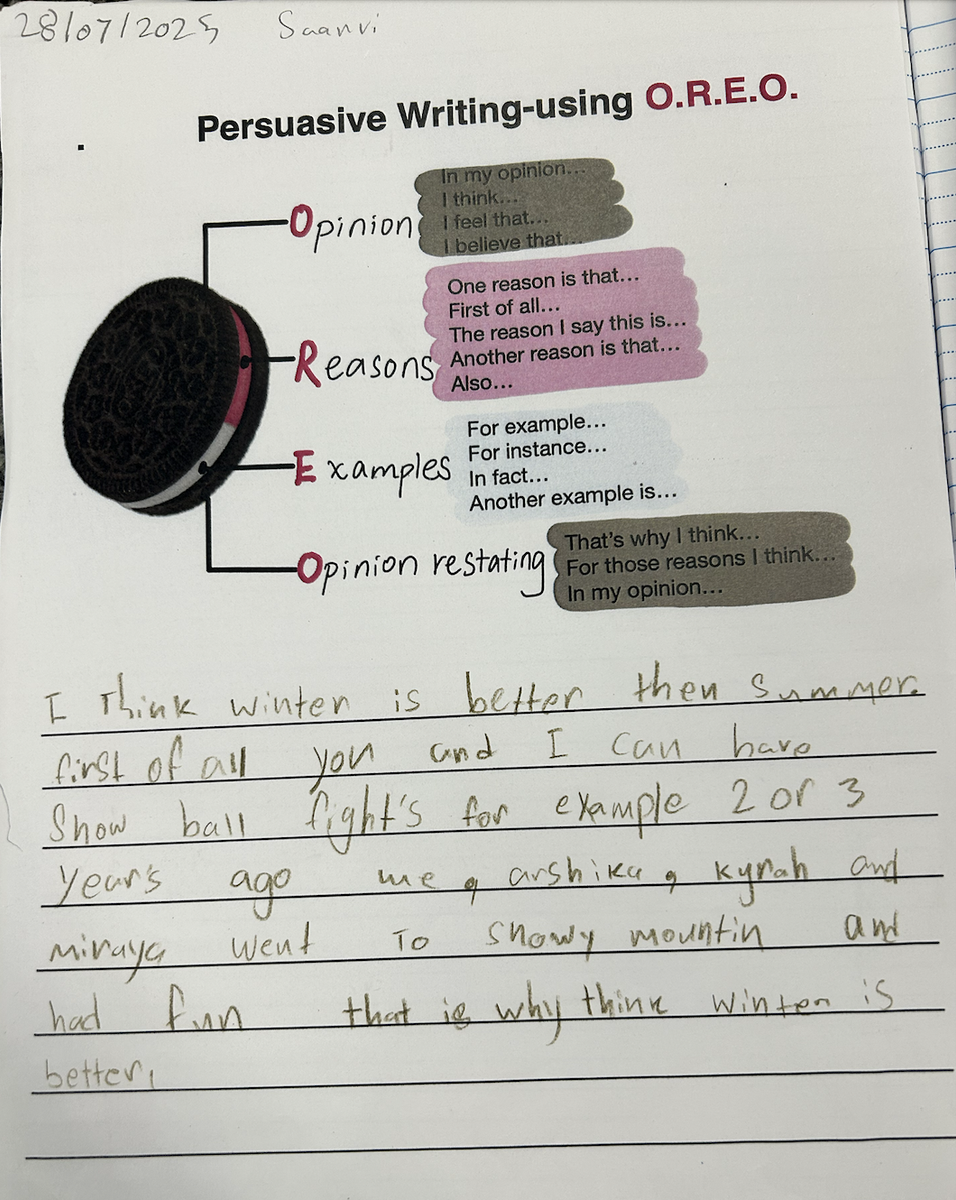 28/07/2025 Saanvi
Persuasive Writing-using O.R.E.O.
Opinion
In my opinion...
I think...
I feel that...
I believe that...
Reasons
One reason is that...
First of all...
The reason I say this is...
Another reason is that...
Also...
Examples
For example...
For instance...
In fact...
Another example is...
Opinion restating
That's why I think...
For those reasons I think...
In my opinion...
I Think winter is better then summer.
first of all you and I can have
Snow ball fight's for example 2 or 3
year's ago me , arshika , kyrah and
miraya went To snowy mountin and
had fun that is why think winter is
better.